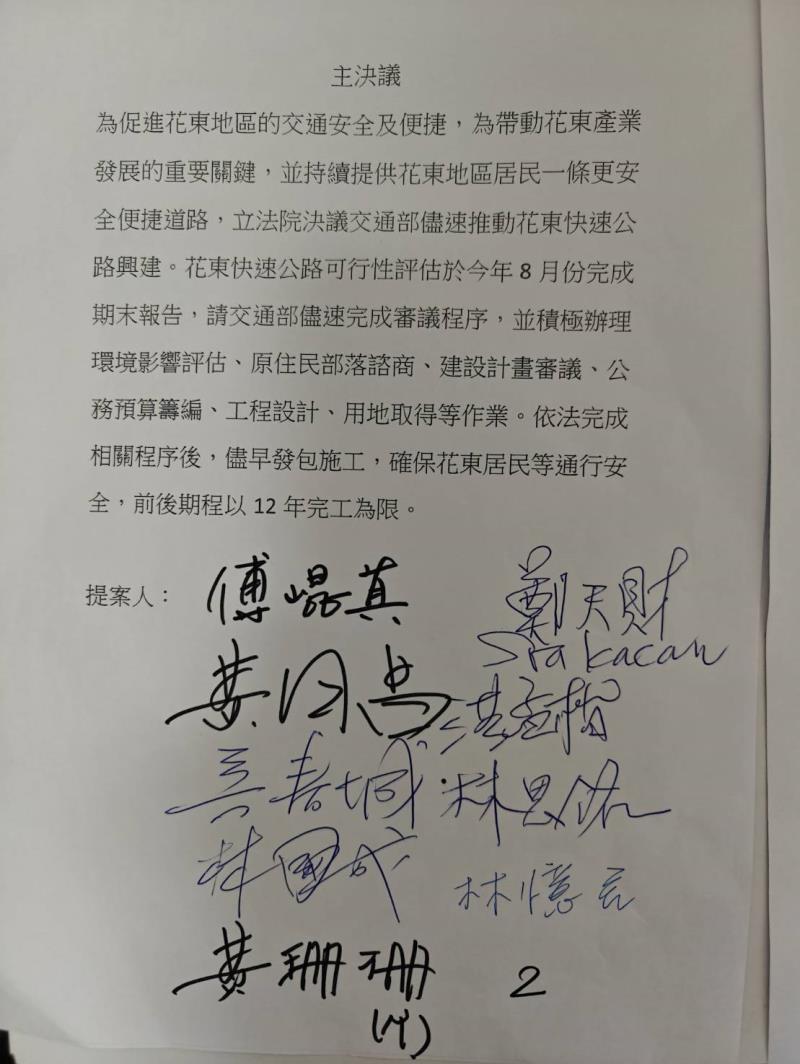 主決議
為促進花東地區的交通安全及便捷，為帶動花東產業
發展的重要關鍵，並持續提供花東地區居民一條更安
全便捷道路，立法院決議交通部儘速推動花東快速公
路興建。花東快速公路可行性評估於今年 8 月份完成
期末報告，請交通部儘速完成審議程序，並積極辦理
環境影響評估、原住民部落諮商、建設計畫審議、公
務預算籌編、工程設計、用地取得等作業。依法完成
相關程序後，儘早發包施工，確保花東居民等通行安
全，前後期程以 12 年完工為限。
提案人： 傅崐萁 鄭天財
Sra Kacaw
黃 洪孟楷
吳春城 林思銘
林國成 林憶君
黃珊珊 2
(代)